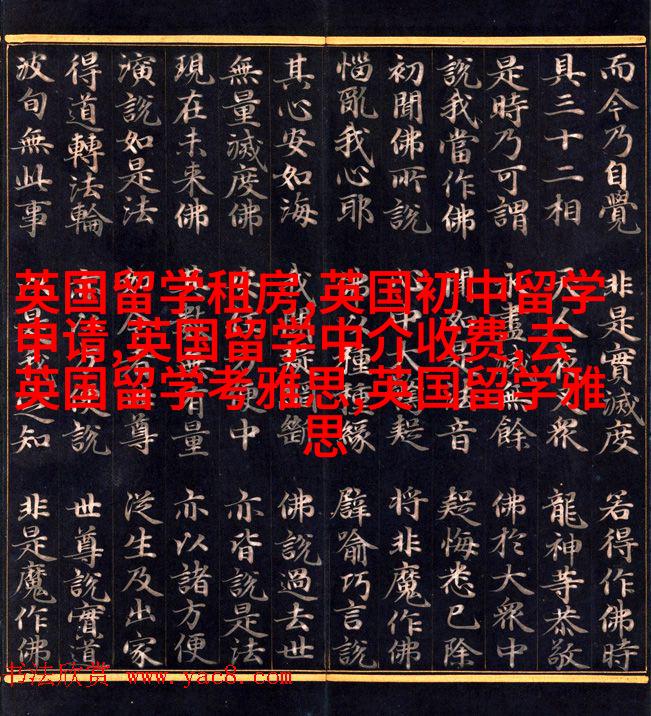 而今乃自覺 非是實滅度 若得作佛時
具三十二相 天人夜叉眾 龍神等恭敬
是時乃可謂 盡滅無餘 佛於大眾中
說我當作佛 聞如 法音 疑悔悉已除
初聞佛所說 心中大 疑 將非魔作佛
惱亂我心耶 佛以種種緣 譬喻巧言說
其心安如海 我聞疑 斷 佛說過去世
無量滅度佛 方便中 亦皆說是法
現在未來佛 其數無有量 亦以諸方便
演說如是法 如今者 尊 從生及出家
得道轉法輪 亦以方便說 世尊說實道
波旬無此事 以是我 知 非是魔作佛
英国留学租房,英国初中留学
申请,英国留学中介收费,去
英国留学考雅思,英国留学雅
思
书法欣赏 www.yac8.com